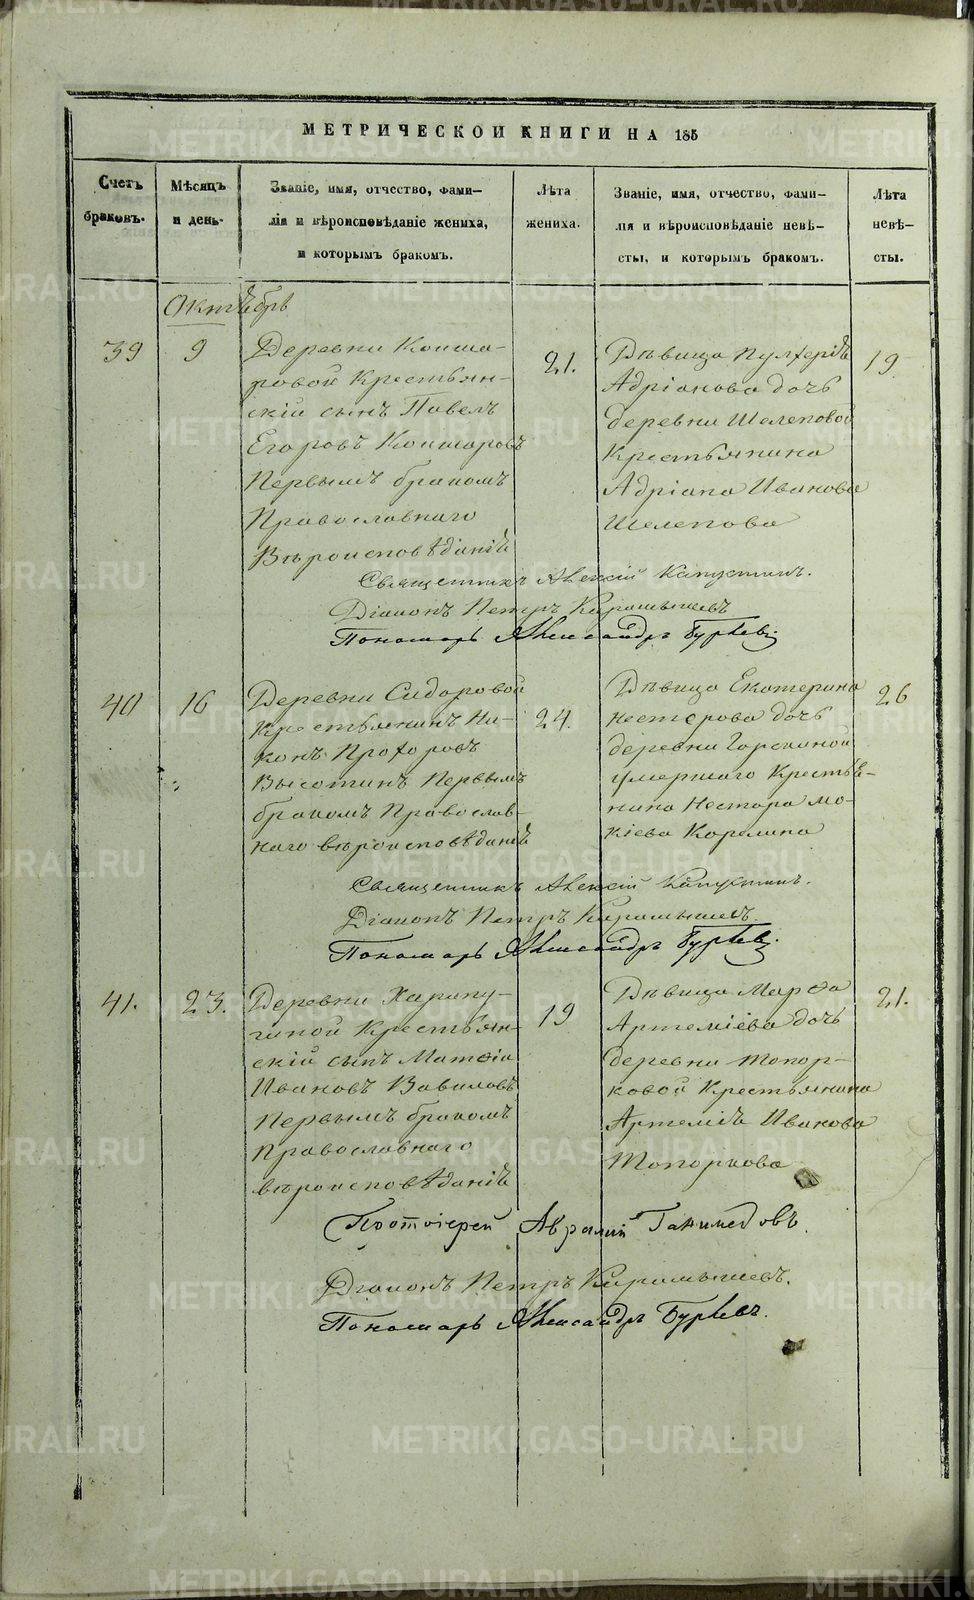 МЕТРИЧЕСКОИ КНИГИ НА 185
Счетъ браковъ.
Мѣсяцъ и день.
Званіе, имя, отчество, фами-
лія и вѣроисповѣданіе жениха,
и которымъ бракомъ.
Лѣта жениха.
Званіе, имя, отчество, фами-
лія и вѣроисповѣданіе невѣ-
сты, и которымъ бракомъ.
Лѣта невѣ-
сты.
Октябрь
39
9
Деревни Кокша-
ровой Крестьян-
скій сынъ Павелъ
Егоровъ Кокшаровъ
Первымъ бракомъ
Православнаго
Вѣроисповѣданія
21.
Дѣвица Пулхерія
Адріанова дочь
деревни Шелеповой
Крестьянина
Адріана Иванова
Шелепова
19
Священникъ Алексій Капустинъ.
Діаконъ Петръ Карамышевъ
Пономарь Александръ
40
16
Деревни Сидоровой
Крестьянинъ Ни-
конъ Прохоровъ
Высотинъ Первымъ
бракомъ Православ-
наго вѣроисповѣданія
24.
Дѣвица Екатерина
Нестерова дочь
деревни
умершаго Крестья-
нина Нестора Мо-
кіева Карелина
26
Священникъ Алексій Капустинъ.
Діаконъ Петръ Карамышевъ.
Пономарь Александръ
41.
23.
Деревни
Крестьян-
скій сынъ Матѳій
Ивановъ Вавиловъ
Первымъ бракомъ
Православнаго
вѣроисповѣданія
19
Дѣвица Марѳа
Артеміева дочь
деревни Топор-
ковой Крестьянина
Артемія Иванова
Топоркова
21.
Протоіерей Авраамій Ганимедовъ.
Діаконъ Петръ Карамышевъ.
Пономарь Александръ
METRIKI.GASO-URAL.RU